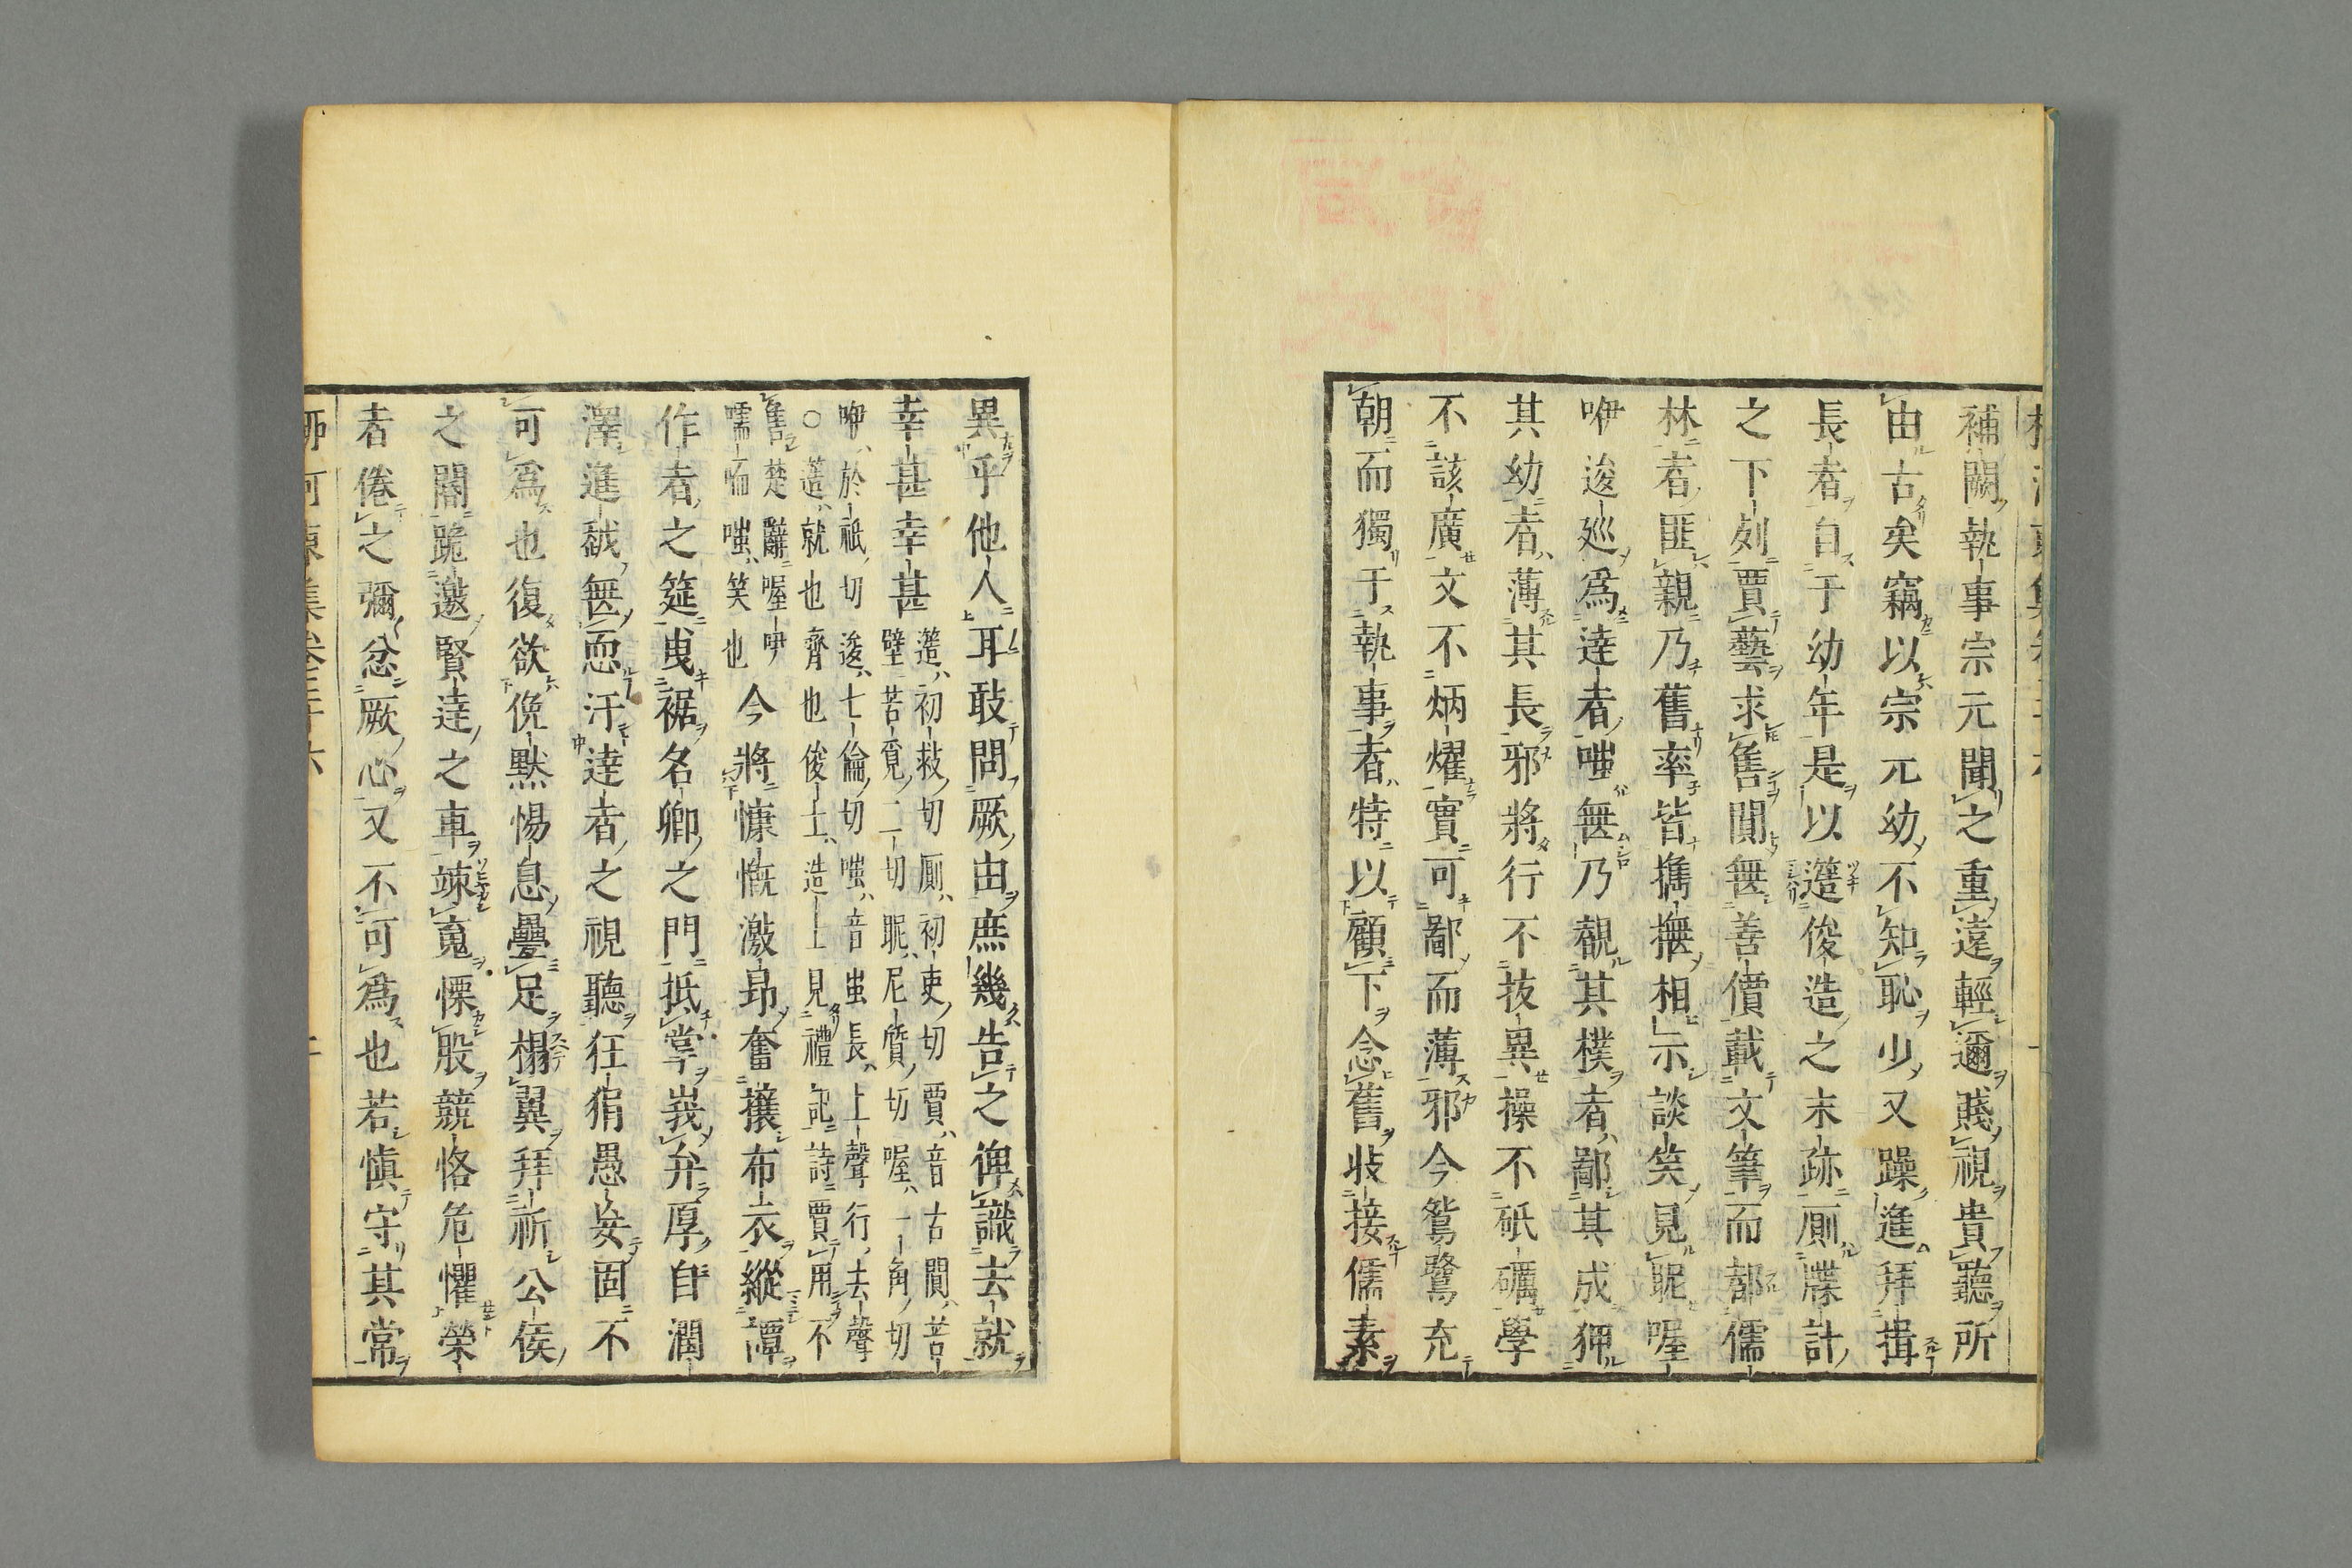 補闕執事宗元聞之重遠輕邇賤視貴聽所
由古矣竊以宗元幼不知恥少又躁進拜揖
長者自于幼年是以簉俊造之末跡廁牒計
之下列賈藝求售閴無善價載文筆而都儒
林者匪親乃舊率皆攜撫相示談笑見昵喔
咿逡巡爲達者嗤無乃覩其樸者鄙其成狎
其幼者薄其長邪將行不拔異操不砥礪學
不該廣文不炳燿實可鄙而薄邪今鴛鷺充
朝而獨于執事者特以顧下念舊收接儒素
異乎他人耳敢問厥由庶幾告之俾識去就
幸甚幸甚
簉初救切廁初吏切賈音古閴苦
壁苦覓二切昵尼質切喔一角切
咿於祇切逡七倫切嗤音蚩長上聲行去聲
○簉就也齊也俊士造士見禮記詩賈用不
售楚辭喔咿
嚅唲嗤笑也
今將慷慨激昻奮攘布衣縱譚
作者之筵曳裾名卿之門抵掌峩弁厚自潤
澤進越無恧汙達者之視聽狂狷愚妄固不
可爲也復欲俛默惕息疊足榻翼拜祈公侯
之閽跪邀賢達之車竦䰟慄股兢恪危懼榮
者倦之彌忿厥心又不可爲也若愼守其常